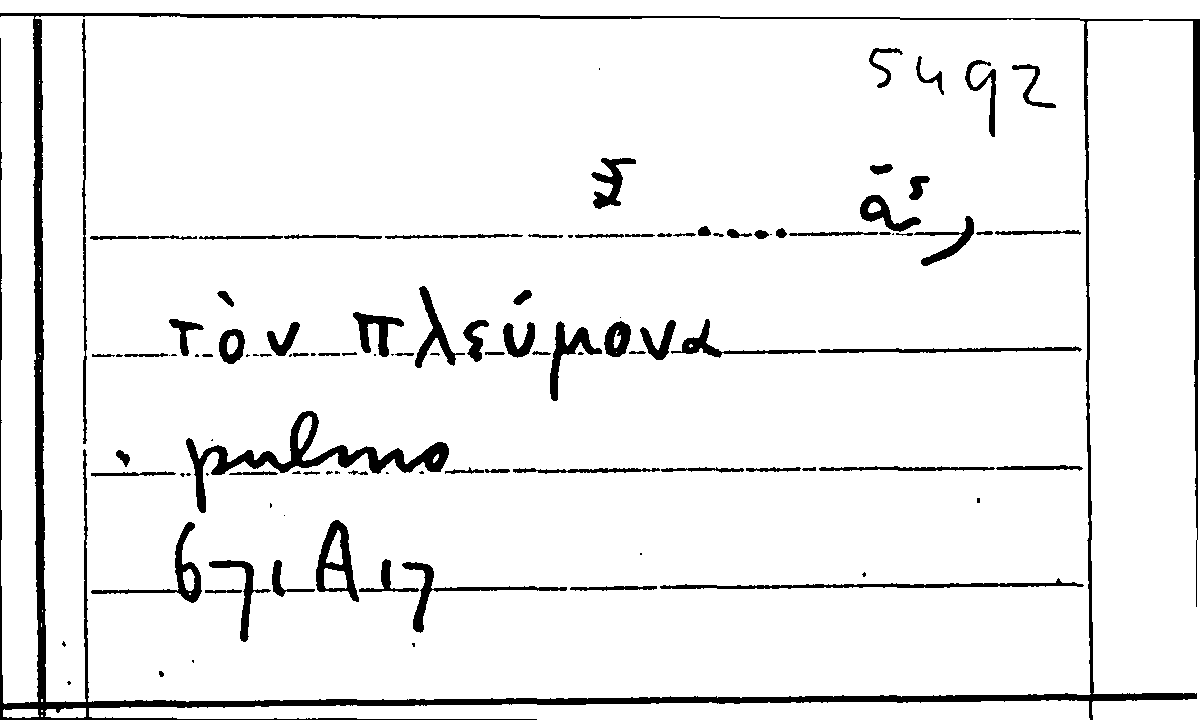 5492
τὸν πλεύμονα
pulmo
671 A 17